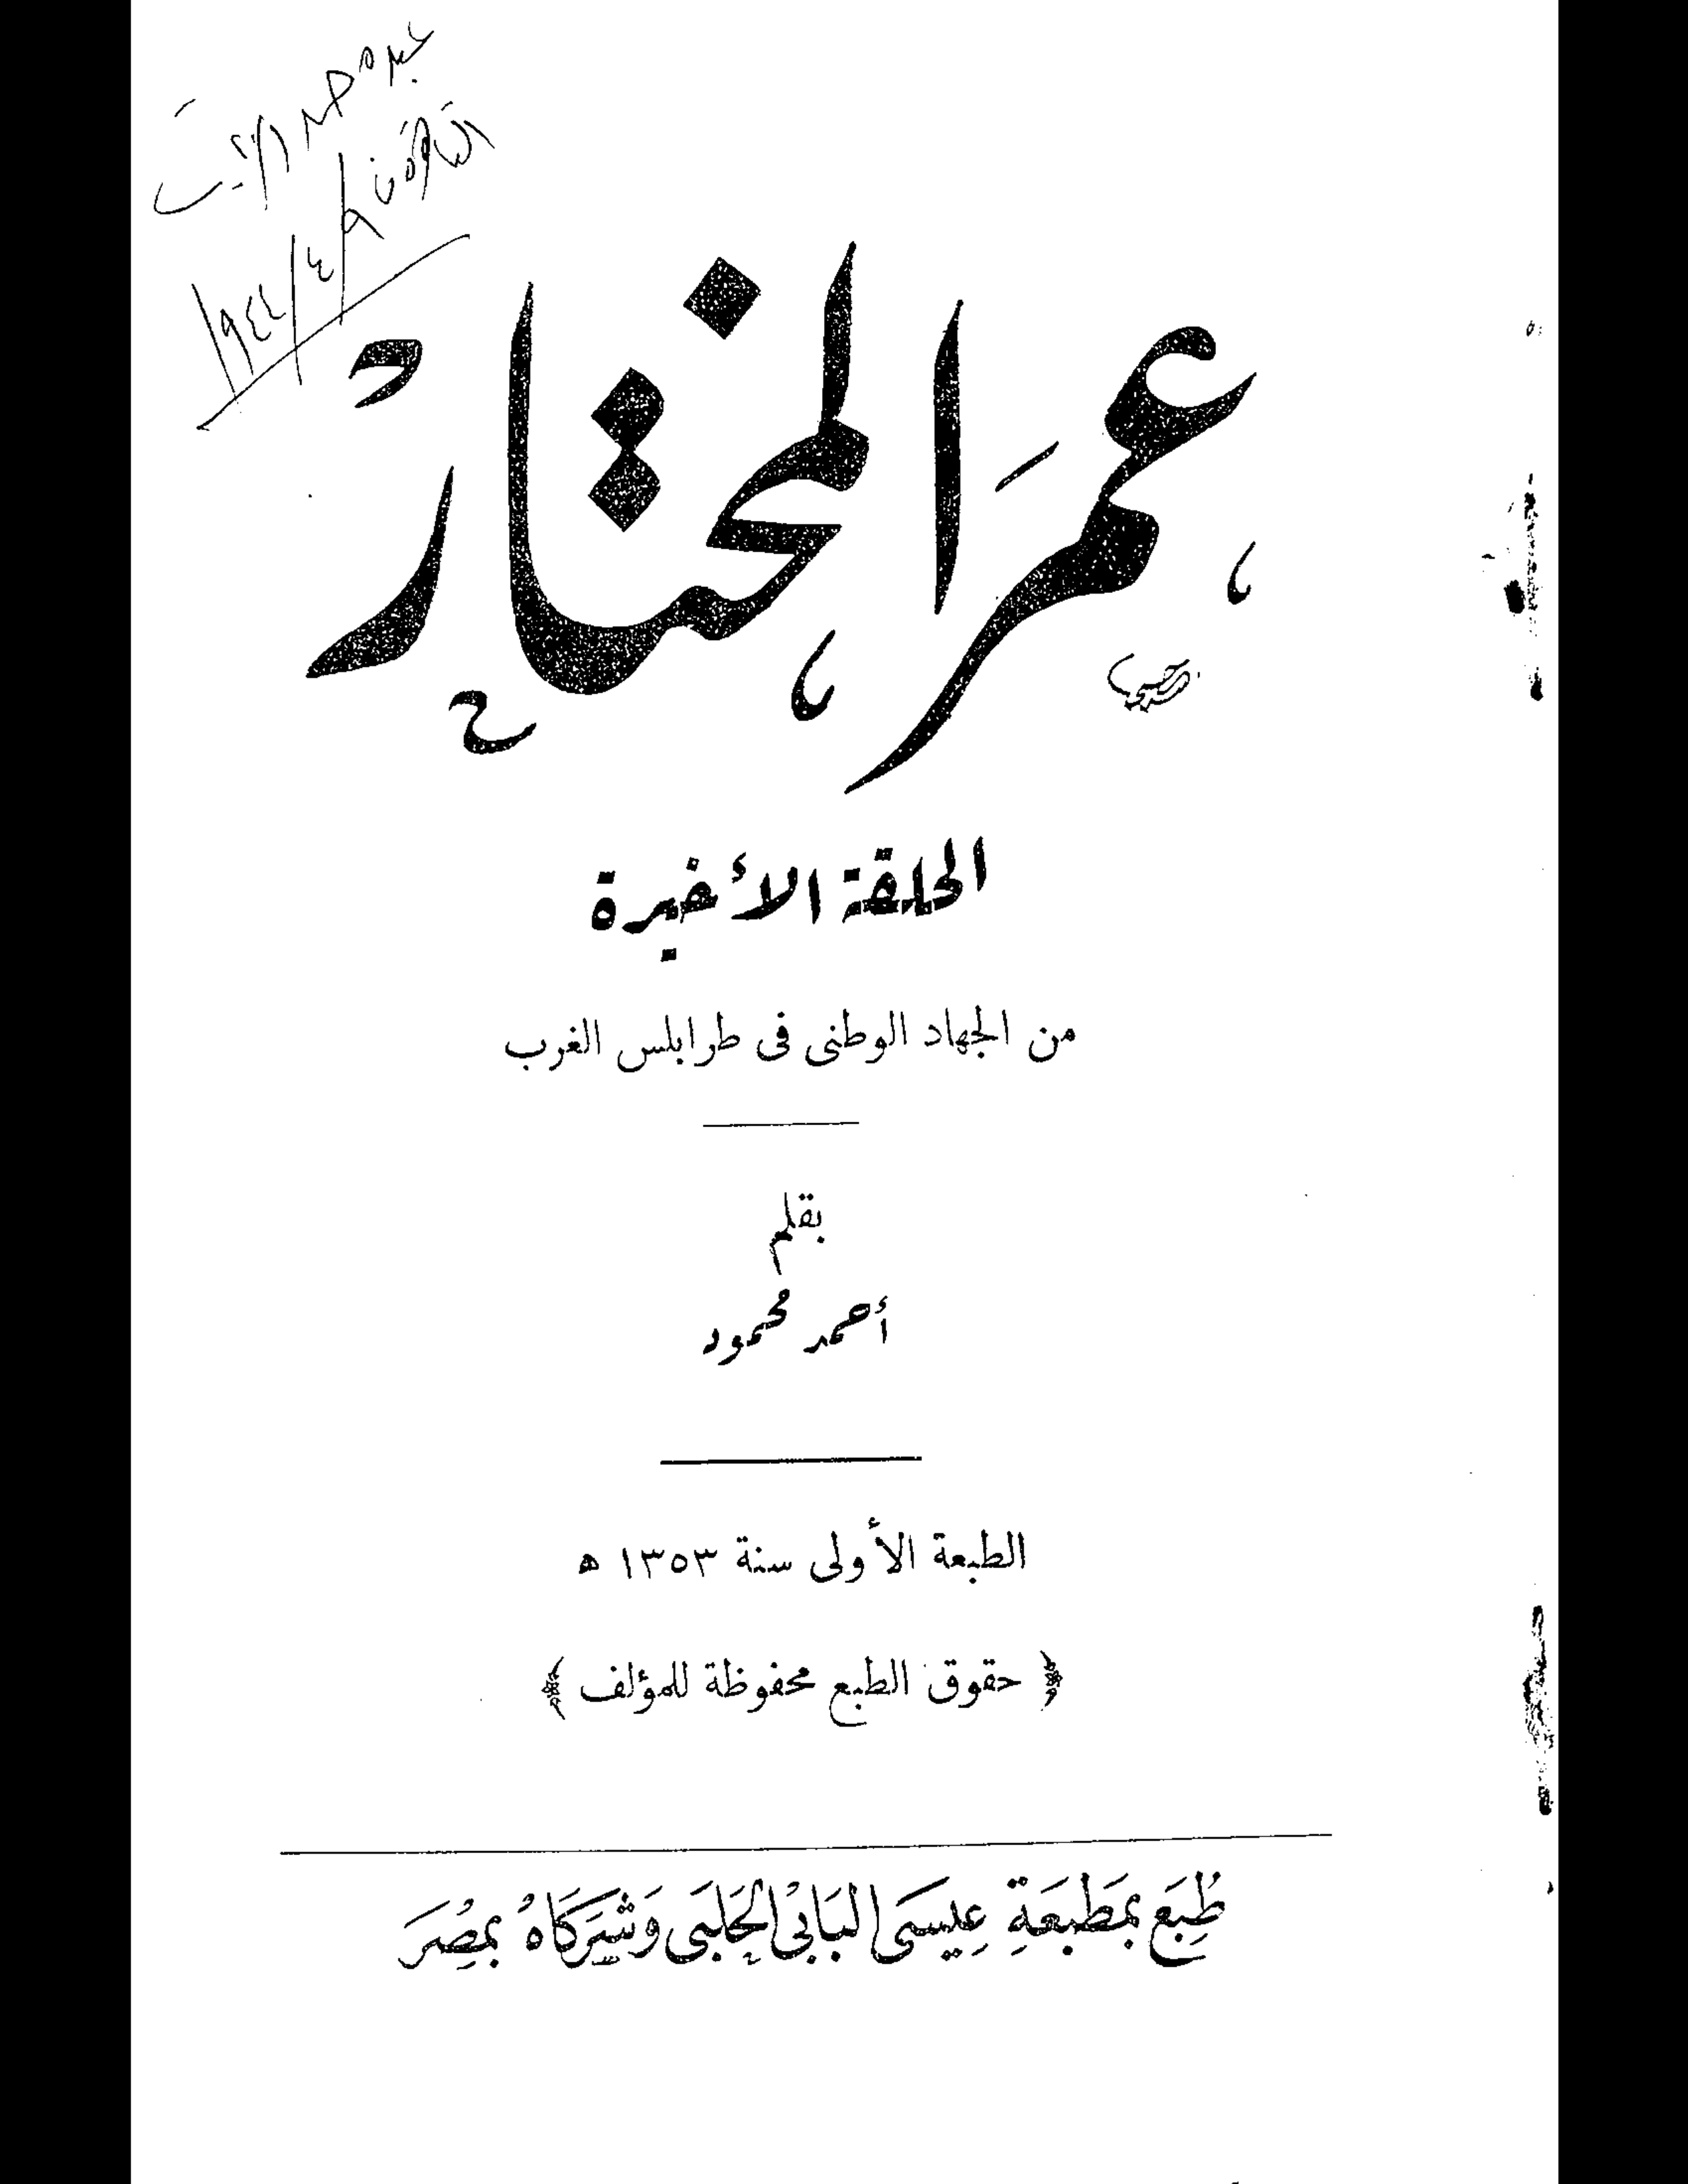 القاهرة في
١٩٤٤/٤/٩
عمر المختار
الحلقة الأخيرة
من الجهاد الوطنى فى طرابلس الغرب
بقلم
أحمد محمود
الطبعة الأولى سنة ١٣٥٣ ه
﴿ حقوق الطبع محفوظة للمؤلف ﴾
طُبِعَ بمَطبَعَةِ عِيسَى البَابىْ الحَلبَى وَشَركَاهُ بمِصْرَ